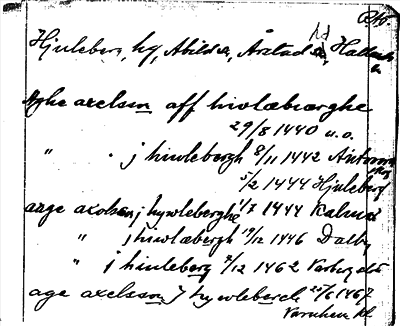 Hjuleberg, by, Abild s, Årstad h, Halland
Aghe axelson aff hiwlæbærghe
29/8 1440 u.o.
" j hiwlebergh 8/11 1442
5/2 1444 Hjuleberg
axolson j hywleberghe 1/7 1444 Kalmar
" j hiwlæbergh 19/12 1446 Dalby
" j hiuleberg 7/12 1462 Varberg
age axelson j hywleberch 25/6 1467